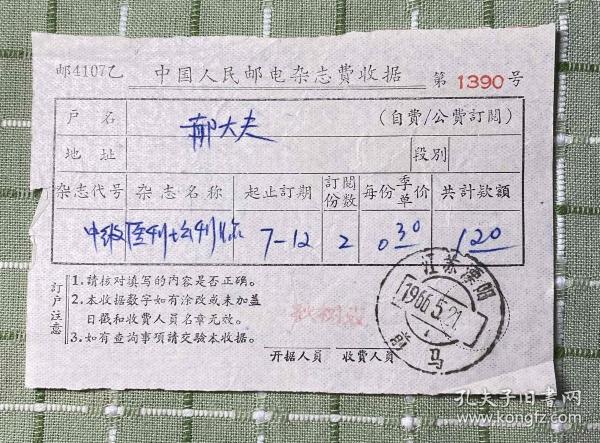 邮4107乙 中国人民邮电杂志費收据 第1390号
户名 郝大夫 (自費/公費訂閱)
地址 段別
杂志代号 杂志名称 起止訂期 訂閱份数 每份季单价 共計欵額
中级医刊 7-12 2 0.30 1.20
訂户注意
1.請核对填写的内容是否正确。
2.本收据数字如有涂改或未加盖
日戳和收費人员名章无效。
3.如有查詢事項請交驗本收据。
开据人員 收費人員
江苏溧阳
1966.5.21
馬
孔夫子旧書网
www.kongfz.com